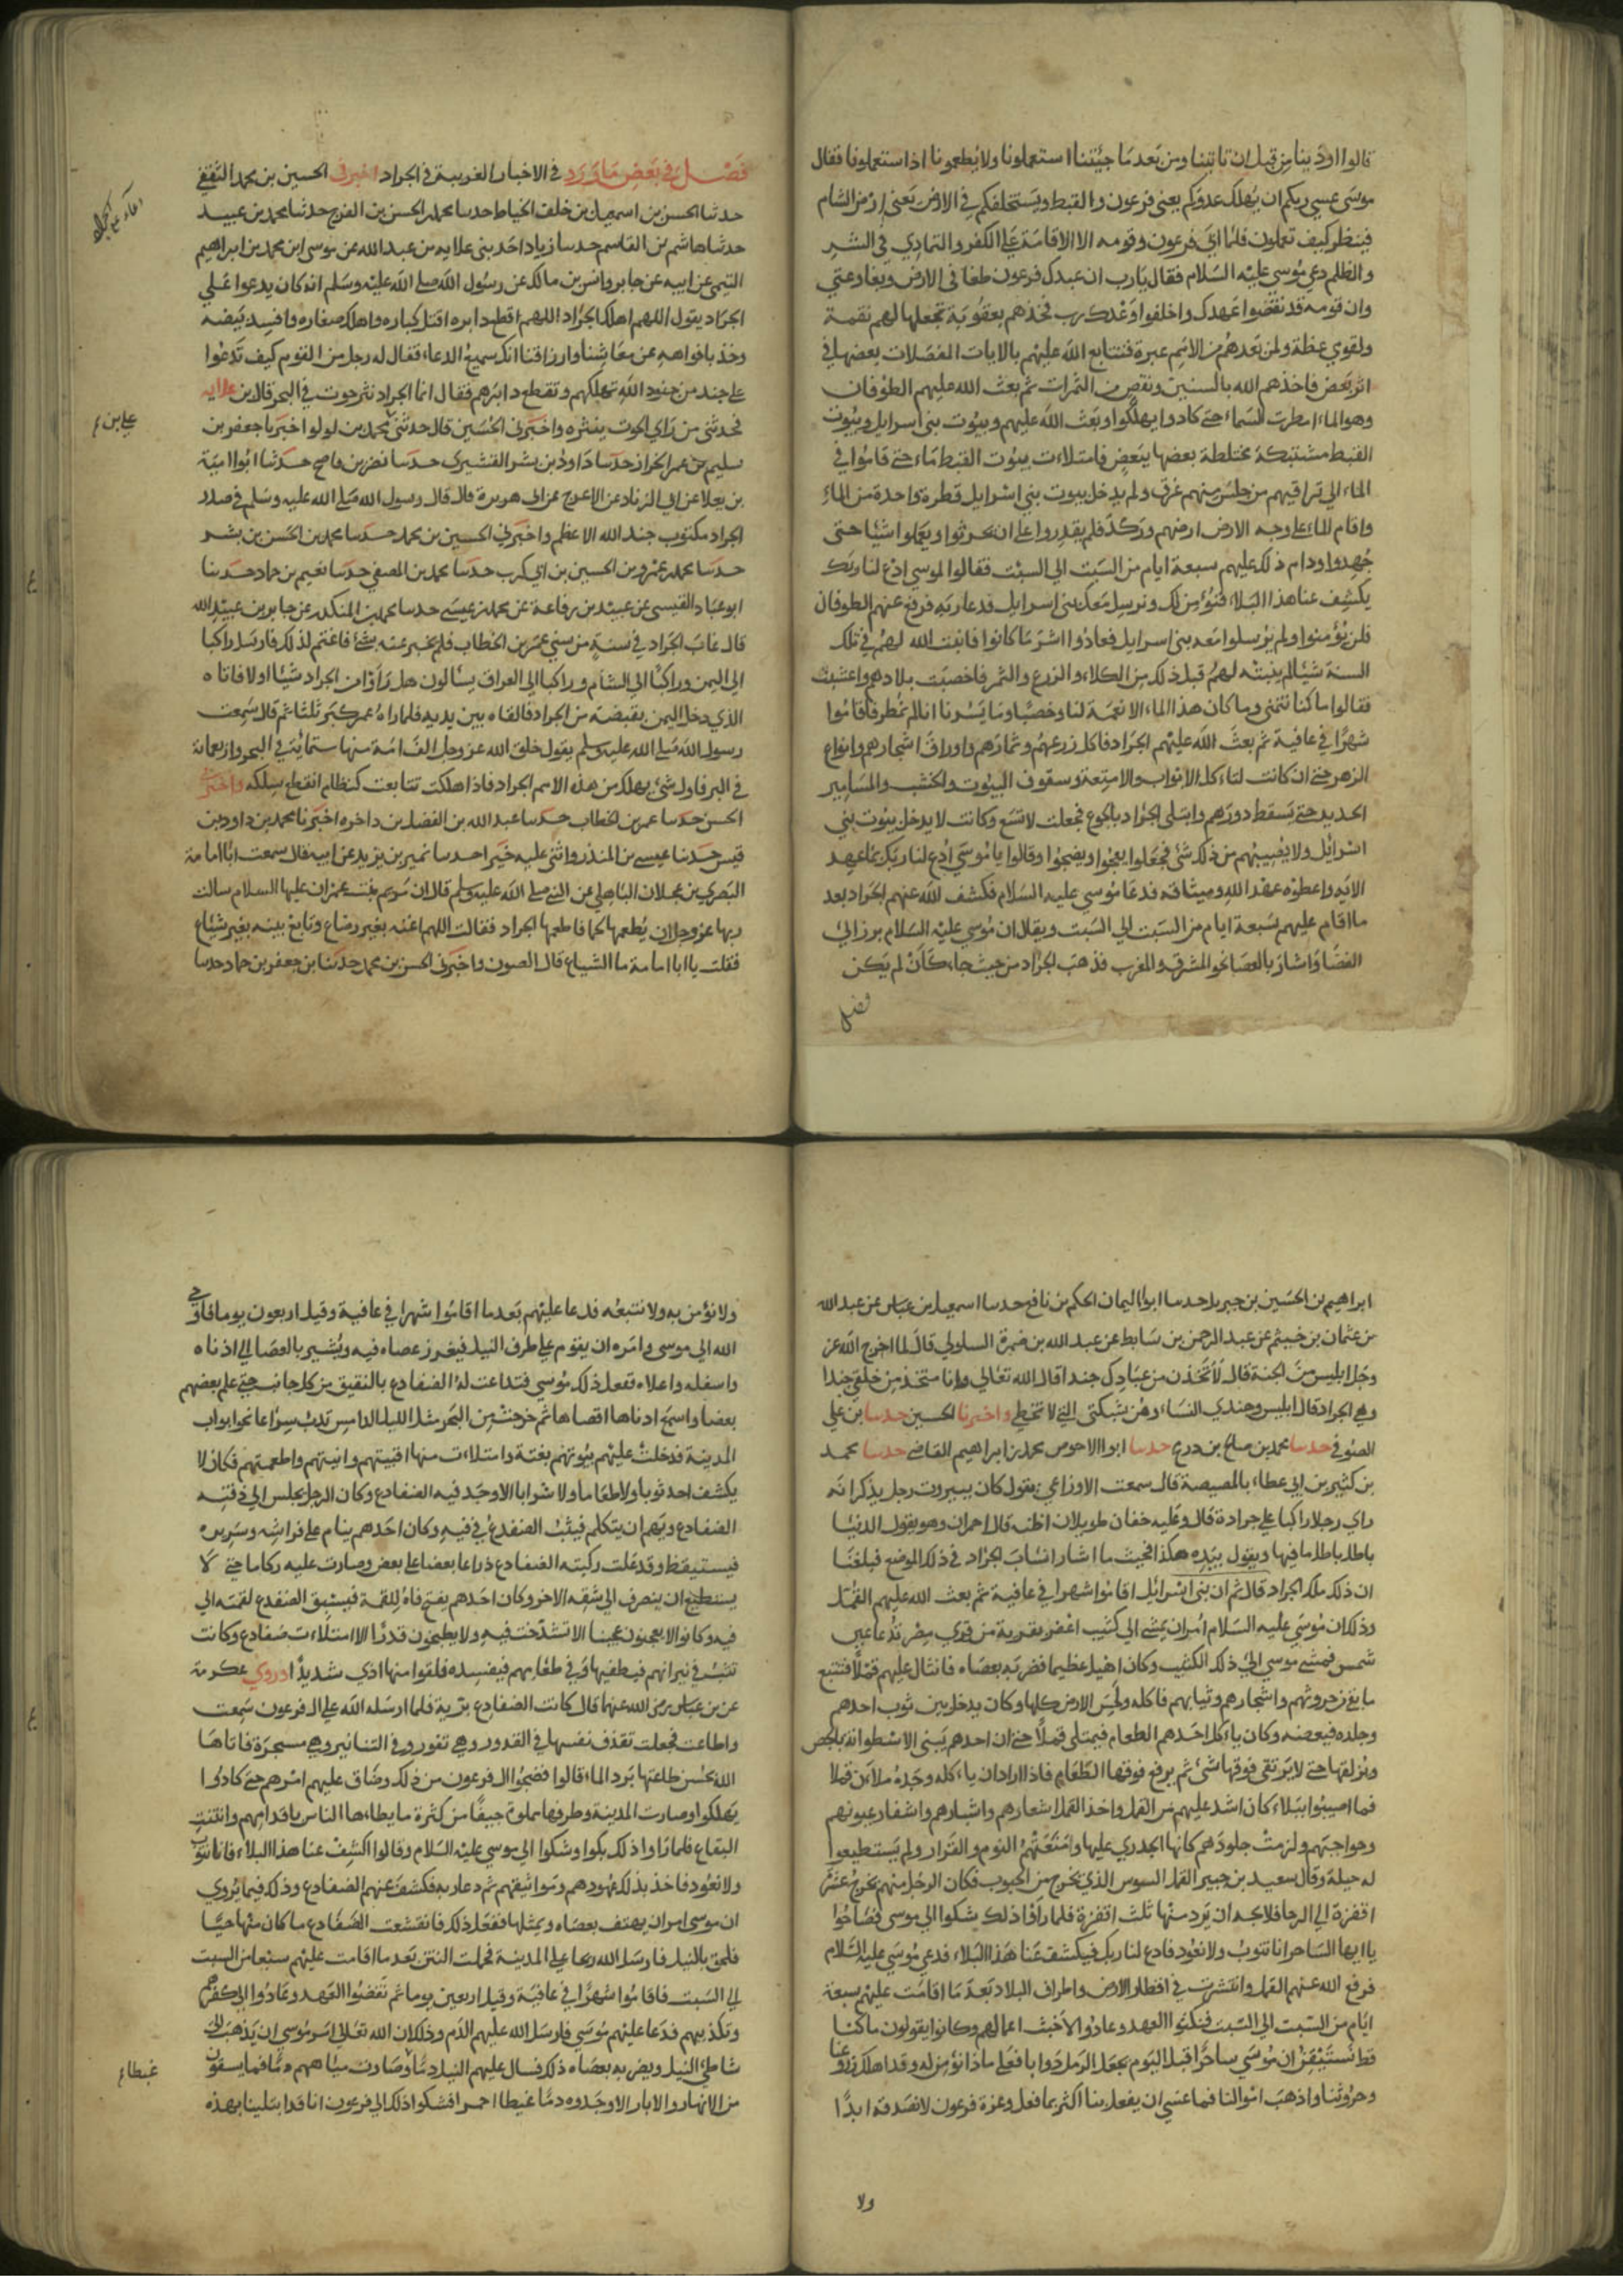 قالوا اوذينا من قبل ان تاتينا ومن بعد ما جيتنا استعملونا ولا يطعمونا اذا استعملونا فقال
موسى عسي ربكم ان يهلك عدوكم يعني فرعون والقبط ويستخلفكم في الارض يعني ارض الشام
فينظر كيف تعملون فلما ابي فرعون وقومه الا الاقامة علي الكفر والتمادي في الشر
والظلم دعي موسي عليه السلام فقال يارب ان عبدك فرعون طغا في الارض وبغا وعتي
وان قومه قد نقضوا عهدك واخلفوا وعدك رب فخذهم بعقوبة تجعلها لهم نقمة
ولقومي عظة ولمن بعدهم من الامم عبرة فتتابع الله عليهم بالايات المفصلات بعضها في
اثر بعض فاخذهم الله بالسنين ونقص من الثمرات ثم بعث الله عليهم الطوفان
وهو الماء امطرت السماء حتي كادوا يهلكوا وبعث الله عليهم وبيوت بني اسرايل وبيوت
القبط مشتبكة مختلطة بعضها ببعض فامتلاءت بيوت القبط ماء حتي قاموا في
الماء الي تراقيهم من جلس منهم غرق ولم يدخل بيوت بني اسرايل قطرة واحدة من الماء
واقام الماء علي وجه الارض ارضهم وركد فلم يقدروا علي ان يحرثوا ويعملوا شيئا حتي
جهدوا ودام ذلك عليهم سبعة ايام من السبت الي السبت فقالوا لموسي ادع لنا ربك
يكشف عنا هذا البلاء فنؤمن لك ونرسل معك بني اسرايل فدعا ربه فرفع عنهم الطوفان
فلن يؤمنوا ولم يرسلوا معه بني اسرايل فعادوا اشر ما كانوا فانبت الله لهم في تلك
السنة شيئا لم ينبته لهم قبل ذلك من الكلاء والزرع والثمر فاخصبت بلادهم واعشبت
فقالوا ما كنا نتمني وما كان هذا الماء الا نعمة لنا وخصبا وما يسرنا انا لم نمطر فاقاموا
شهرا في عافية ثم بعث الله عليهم الجراد فاكل زرعهم وثمارهم واوراق اشجارهم وانواع
الزهر حتي ان كانت لتاءكل الابواب والامتعة وسقوف البيوت والخشب والمسامير
الحديد حتي يسقط دورهم وابتلي الجراد بالجوع فجعلت لا تشبع وكانت لا يدخل بيوت بني
اسرايل ولا يصيبهم من ذلك شئ فجعلوا يعجوا ويضجوا وقالوا يا موسي ادع لنا ربك بما عهد
الايه واعطوه عهد الله وميثاقه فدعا موسي عليه السلام فكشف الله عنهم الجراد بعد
ما اقام عليهم سبعة ايام من السبت الي السبت ويقال ان موسي عليه السلام برز الي
الفضا واشار بالعصا نحو المشرق والمغرب فذهب الجراد من حيث جاء كان لم يكن
فصل
فصل في بعض ما ورد في الاخبار الغريبة في الجراد اخبرني الحسين بن محمد الثقفي
حدثنا الحسن بن اسمعيل بن خلف الخياط حدسا محمد بن الحسن بن الفرج حدثنا محمد بن عبيد
حدثنا هاشم بن القاسم حدسا زياد احد بني علايه بن عبد الله عن موسى ابن محمد بن ابراهيم
التيمي عن ابيه عن جابر وانس بن مالك عن رسول الله صلي الله عليه وسلم انه كان يدعوا علي
الجراد يقول اللهم اهلك الجراد اللهم اقطع دابره اقتل كباره واهلك صغاره وافسد بيضه
وخذ بافواهه عن معاشنا وارزاقنا انك سميع الدعاء فقال له رجل من القوم كيف تدعوا
علي جند من جنود الله تهلكهم وتقطع دابرهم فقال انما الجراد نثر حوت في البحر قال بن علايه
فحدثني من راي الحوت ينثره واخبرني الحسين قال حدثني محمد بن لولو اخبرنا جعفر بن
علي بن ع
سليم بن عمر الخراز حدسا داود بن بشر القشيري حدسا نضر بن ناصح حدثنا ابوا امية
بن يعلا عن ابي الزناد عن الاعرج عن ابي هريرة قال قال رسول الله صلي الله عليه وسلم في صدر
الجراد مكتوب جند الله الاعظم واخبرني الحسين بن محمد حدسا محمد بن الحسن بن بشر
حدسا محمد بن عمرو بن الحسين بن ابي كرب حدسا محمد بن المصفي حدسا نعيم بن حماد حدسا
ابو عباد القيسي عن عبيد بن رفاعة عن محمد بن عيسي حدسا محمد بن المنكدر عن جابر بن عبيد الله
قال غاب الجراد في سنة من سني عمر بن الخطاب فلم يخبر عنه بشئ فاغتم لذلك فارسل راكبا
الي اليمن وراكبا الي الشام وراكبا الي العراق يسالون هل راوا من الجراد شيئا او لا فاتاه
الذي دخل اليمن بقبضة من الجراد فالقاه بين يديه فلما راه عمر كبر ثلثا ثم قال سمعت
رسول الله صلي الله عليه وسلم يقول خلق الله عز وجل الف امة منها ستماية في البحر واربعماية
في البر فاول شئ يهلك من هذه الامم الجراد فاذا هلكت تتابعت كنظام انقطع سلكه واخبرني
الحسن حدسا عمر بن الخطاب حدسا عبد الله بن الفضل بن داخره اخبرنا محمد بن داود بن
قيس حدسا عيسي بن المنذر واثني عليه خيرا حدسا نمير بن يزيد عن ابيه قال سمعت ابا امامة
البصري بن عجلان الباهلي عن النبي صلي الله عليه وسلم قال ان مريم بنت عمران عليها السلام سالت
ربها عز وجل ان يطعمها لحما فاطعمها الجراد فقالت اللهم اعنه بغير رضاع وتابع بينه بغير شياع
فقلت يا ابا امامة ما الشياع قال الصوت واخبرني الحسن بن محمد حدثنا بن جعفر بن حماد حدسا
ابراهيم بن الحسين بن جبريل حدسا ابوا اليمان الحكم بن نافع حدسا اسمعيل بن عياش عن عبد الله
بن عثمان بن خيثم عن عبد الرحمن بن سابط عن عبد الله بن ضمرة السلولي قال لما اخرج الله عز
وجل ابليس من الجنة قال لاتخذن من عبادك جندا قال الله تعالي وانا متخذ من خلقي جندا
وهي الجراد قال ابليس وجندي النساء وهن شبكتي التي لا تخطي واخبرنا الحسين حدسا بن علي
الصوفي حدسا محمد بن صالح بن درع حدسا ابوا الاحوص محمد بن ابراهيم القاضي حدسا محمد
بن كثير بن ابي عطاء بالمصيصة قال سمعت الاوزاعي يقول كان ببيروت رجل يذكر انه
راي رجلا راكبا علي جرادة قال وعليه خفان طويلان اظنه قال احمران وهو يقول الدنيا
باطل باطل ما فيها ويقول بيده هكذا فحيث ما اشار انساب الجراد في ذلك الموضع فبلغنا
ان ذلك ملك الجراد قال ثم ان بني اسرايل اقاموا شهرا في عافية ثم بعث الله عليهم القمل
وذلك ان موسي عليه السلام امر ان يمشي الي كثيب اعفر بقرية من قري مصر تدعا عين
شمس فمشي موسي الي ذلك الكثيب وكان اهيل عظيما فضربه بعصاه فانثال عليهم قملا فتتبع
ما بقي من حروثهم واشجارهم وثيابهم فاكله ولحس الارض كلها وكان يدخل بين ثوب احدهم
وجلده فيعضه وكان ياءكل احدهم الطعام فيمتلي قملا حتي ان احدهم يبني الاسطوانه بالجص
ويزلقها حتي لا يرتقي فوقها شئ ثم يرفع فوقها الطعام فاذا اراد ان ياءكله وجده ملان قملا
فما اصيبوا ببلاء كان اشد عليهم من القمل واخذ القمل اشعارهم وابشارهم واشفار عيونهم
وحواجبهم ولزمت جلودهم كانها الجدري عليها وامتعتهم النوم والقرار ولم يستطيعوا
له حيلة وقال سعيد بن جبير القمل السوس الذي يخرج من الحبوب فكان الرجل منهم يخرج عشر
اقفزة الي الرحا فلا يجد ان يرد منها ثلث اقفزة فلما راوا ذلك شكوا الي موسي فصاحوا
يا ايها الساحر انا نتوب ولا نعود فادع لنا ربك فيكشف عنا هذا البلاء فدعي موسي عليه السلام
فرفع الله عنهم القمل وانتشرت في اقطار الارض واطراف البلاد بعد ما اقامت عليهم سبعة
ايام من السبت الي السبت فنكثوا العهد وعادوا لاخبث اعمالهم وكانوا يقولون ما كنا
قط نستيقن ان موسي ساحرا قبل اليوم يجعل الرمل دوابا فعلي ماذا نؤمن له وقد اهلك زروعنا
وحروثنا واذهب اموالنا فما عسي ان يفعل بنا اكثر مما فعل وعزة فرعون لا نصدقه ابدا
ولا
ولا نؤمن به ولا نتبعه فدعا عليهم بعد ما اقاموا شهرا في عافية وقيل اربعون يوما فاوحي
الله الي موسي وامره ان يقوم علي طرف النيل فيغرز عصاه فيه ويشير بالعصا الي ادناه
واسفله واعلاه ففعل ذلك موسي فتداعت له الضفادع بالنقيق من كل جانب حتي علم بعضهم
بعضا واسمع ادناها اقصاها ثم خرجت من البحر مثل الليل الدامس تدب سراعا نحو ابواب
المدينة فدخلت عليهم بيوتهم بغتة وامتلاءت منها افنيتهم وانيتهم واطعمتهم فكان لا
يكشف احد ثوبا ولا طعاما ولا شرابا الا وجد فيه الضفادع وكان الرجل يجلس الي ذقنه
الضفادع ويهم ان يتكلم فيثب الضفدع في فيه وكان احدهم ينام علي فراشه وسريره
فيستيقظ وقد علت ركبته الضفادع ذراعا بعضا علي بعض وصارت عليه ركاما حتي لا
يستطيع ان ينصرف الي شقه الاخر وكان احدهم يفتح فاه للقمة فيسبق الضفدع لقمته الي
فيه وكانوا لا يعجنون عجينا الا تشدخت فيه ولا يطبخون قدرا الا امتلاءت ضفادع وكانت
تثب في نيرانهم فيطفيها وفي طعامهم فيفسده فلقوا منها اذي شديدا وروي عكرمة
عن بن عباس رضي الله عنهما قال كانت الضفادع برية فلما ارسله الله علي ال فرعون سمعت
واطاعت فجعلت تقذف نفسها في القدور وهي تفور وفي التنانير وهي مسجرة فاثابها
الله بحسن طاعتها برد الماء قالوا فضجوا ال فرعون من ذلك وضاق عليهم امرهم حتي كادوا
يهلكوا وصارت المدينة وطرقها مملوة جيفا من كثرة ما يطاءها الناس باقدامهم وانتنت
البقاع فلما راوا ذلك بكوا وشكوا الي موسي عليه السلام وقالوا اكشف عنا هذا البلاء فانا نتوب
ولا نعود فاخذ بذلك عهودهم ومواثيقهم ثم دعا ربه فكشف عنهم الضفادع وذلك فيما يروي
ان موسي امر ان يهتف بعصاه ويمثلها ففعل ذلك فانقشعت الضفادع ما كان منها حيا
فلحق بالنيل فارسل الله ريحا علي المدينة فحملت النتن بعد ما اقامت عليهم سبعا من السبت
الي السبت فاقاموا شهرا في عافية وقيل اربعين يوما ثم نقضوا العهد وعادوا الي كفرهم
وتكذيبهم فدعا عليهم موسي فارسل الله عليهم الدم وذلك ان الله تعالي امر موسي ان يذهب الي
شاطئ النيل ويضربه بعصاه ذلك فسال عليهم النيل دما وصارت مياههم دما فما يسقون
غبيطا ع
من الانهار والابار الا وجدوه دما غبيطا احمر فشكوا ذلك الي فرعون انا قد ابتلينا بهذه